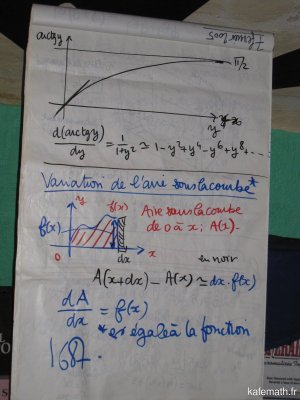 arctgy
π/2
y
d(arctgy)/dy = 1/1+y² ≃ 1-y²+y⁴-y⁶+y⁸+...
Variation de l'aire sous la courbe*
y
f(x)
f(x)
Aire sous la courbe
de 0 à x; A(x).
0
dx
x
en noir
A(x+dx) - A(x) ≃ dx·f(x)
dA/dx = f(x)
* est égale à la fonction
168.
kafemath.fr